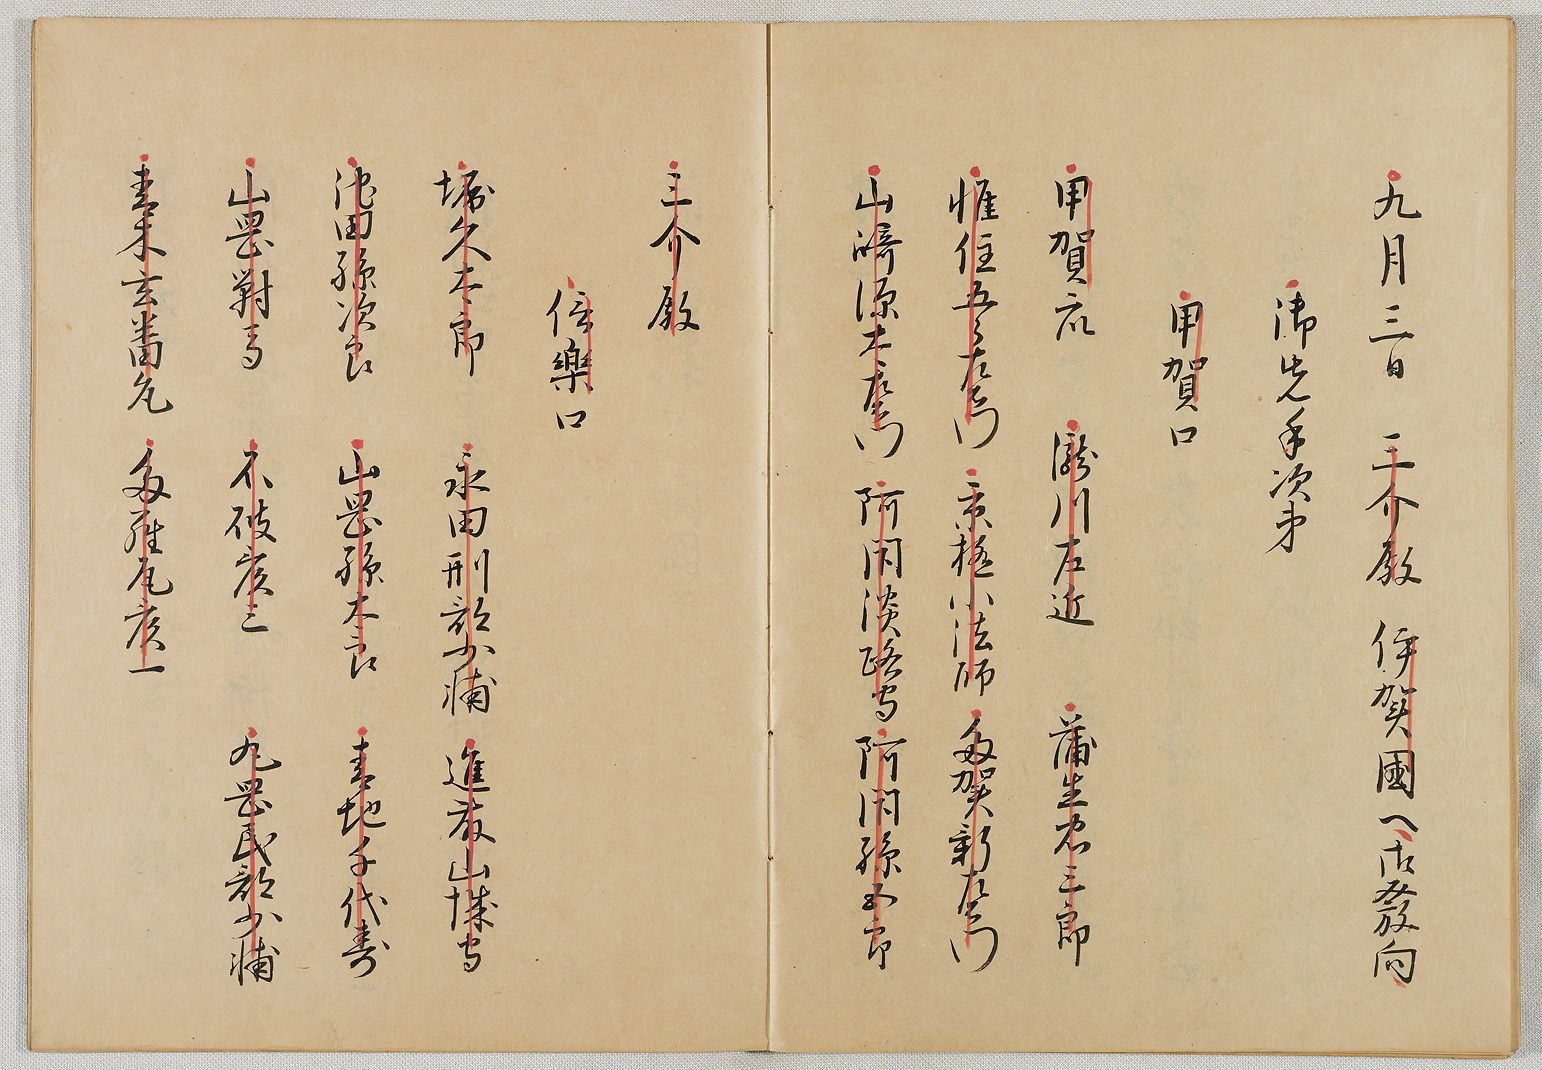 九月三日 三介殿 伊賀國へ御發向
御先手次第
甲賀口
甲賀衆 瀧川左近 蒲生忠三郎
惟住五郎左衛門 京極小法師 多賀新左衛門
山崎源太左衛門 阿閉淡路守 阿閉孫五郎
三介殿
信樂口
堀久太郎 永田刑部少輔 進藤山城守
池田孫次郎 山岡孫太郎 青地千代壽
山岡對馬 不破彦三 丸岡民部少輔
青木玄蕃允 多羅尾彦一